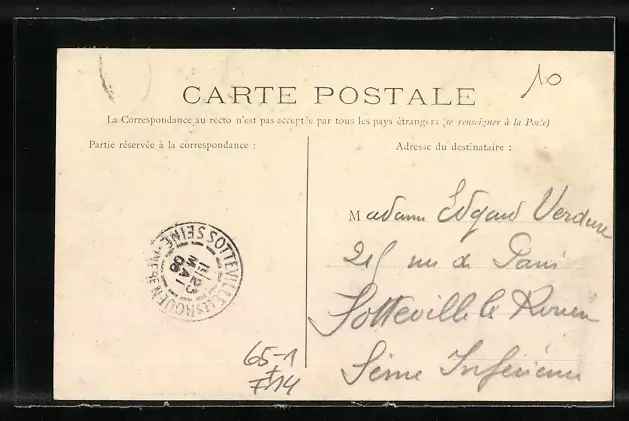 10
CARTE POSTALE
La Correspondance au recto n'est pas acceptée par tous les pays étrangers (se renseigner à la Poste)
Partie réservée à la correspondance :
Adresse du destinataire :
Madame Edgard Verdure
215 rue de Paris
Sotteville le Rouen
Seine Inférieure
SOTTEVILLE LES ROUEN SEINE INFERE
23
MAI
08
65-1
714